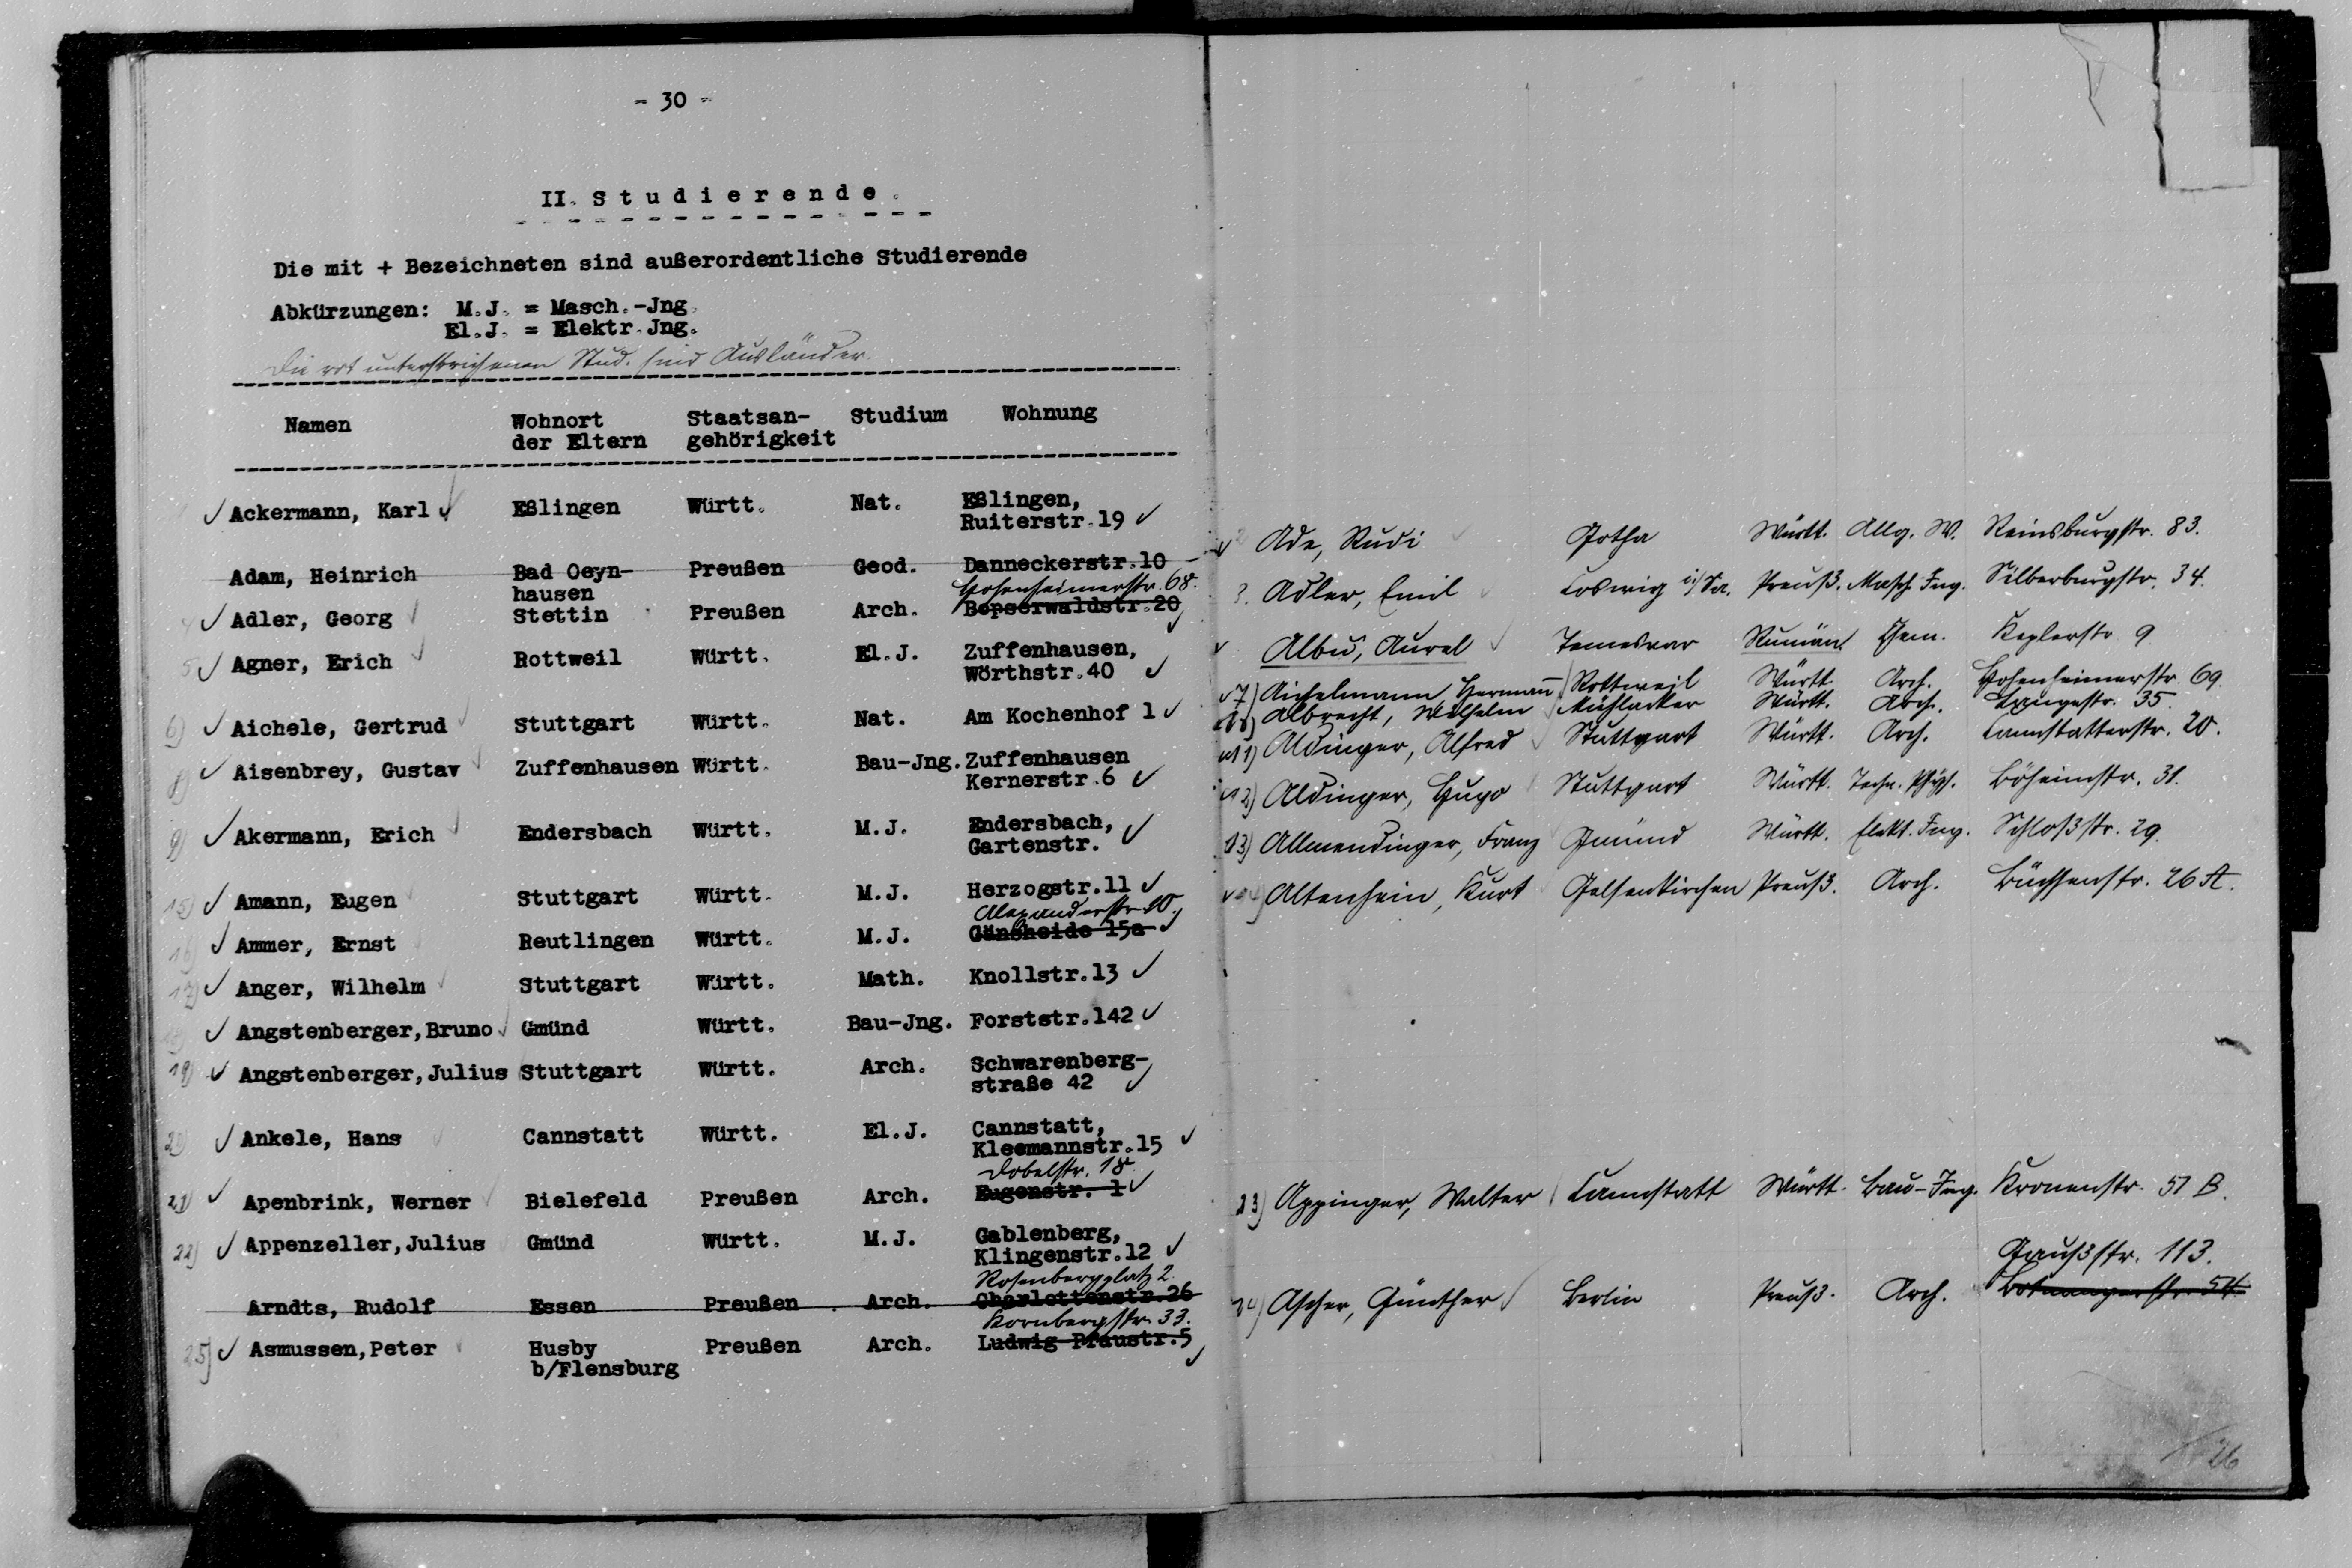 - 30 -
II. Studierende.
Die mit + Bezeichneten sind außerordentliche Studierende
Abkürzungen: M.J. = Masch.-Jng.
El.J. = Elektr.Jng.
Die rot unterstrichenen Stud. sind Ausländer.
Namen Wohnort der Eltern Staatsan- gehörigkeit Studium Wohnung
✓ Ackermann, Karl ✓ Eßlingen Württ. Nat. Eßlingen,
Ruiterstr.19 ✓
Adam, Heinrich Bad Oeyn- Preußen Geod. Danneckerstr.10
hausen Hohenheimerstr. 68.
✓ Adler, Georg Stettin Preußen Arch. Bopserwaldstr.20
5 ✓ Agner, Erich Rottweil Württ. El.J. Zuffenhausen,
Wörthstr.40 ✓
6) ✓ Aichele, Gertrud Stuttgart Württ. Nat. Am Kochenhof 1 ✓
8) ✓ Aisenbrey, Gustav Zuffenhausen Württ. Bau-Jng. Zuffenhausen
Kernerstr.6 ✓
9) ✓ Akermann, Erich Endersbach Württ. M.J. Endersbach,
Gartenstr. ✓
15) ✓ Amann, Eugen Stuttgart Württ. M.J. Herzogstr.11 ✓
Alexanderstr. 10.
16) ✓ Ammer, Ernst Reutlingen Württ. M.J. Gänsheide 15a ✓
17) ✓ Anger, Wilhelm Stuttgart Württ. Math. Knollstr.13 ✓
18) ✓ Angstenberger, Bruno Gmünd Württ. Bau-Jng. Forststr.142 ✓
19) ✓ Angstenberger, Julius Stuttgart Württ. Arch. Schwarenberg-
straße 42 ✓
20) ✓ Ankele, Hans Cannstatt Württ. El.J. Cannstatt,
Kleemannstr.15 ✓
Dobelstr. 18
21) ✓ Apenbrink, Werner Bielefeld Preußen Arch. Eugenstr. 1 ✓
22) ✓ Appenzeller, Julius Gmünd Württ. M.J. Gablenberg,
Klingenstr.12 ✓
Rosenbergplatz 2.
Arndts, Rudolf Essen Preußen Arch. Charlottenstr.26
Kornbergstr. 33.
25) ✓ Asmussen, Peter Husby Preußen Arch. Ludwig Pfaustr.5
b/Flensburg ✓
✓ 2 Ade, Rudi Gotha Württ. Allg. W. Reinsburgstr. 83.
3. Adler, Emil Coswig i/Sa. Preuß. Masch. Ing. Silberburgstr. 34.
✓ Albu, Aurel ✓ Temesvar Rumän. Chem. Keplerstr. 9
✓ 7) Aichelmann, Hermann Rottweil Württ. Arch. Hohenheimerstr. 69.
10) Albrecht, Wilhelm Mühlacker Württ. Arch. 35.
11) Aldinger, Alfred Stuttgart Württ. Arch. Cannstatterstr. 20.
12) Aldinger, Hugo Stuttgart Württ. Techn. Phys. Böheimstr. 31.
13) Allmendinger, Franz Gmünd Württ. Elekt. Ing. Schloßstr. 29.
✓ 14) Altenhein, Kurt Gelsenkirchen Preuß. Arch. Büchsenstr. 26 A.
23) Appinger, Walter Cannstatt Württ. Bau-Ing. Kronenstr. 51 B.
Gaußstr. 113.
24) Ascher, Günther Berlin Preuß. Arch. Botnangerstr. 54
26